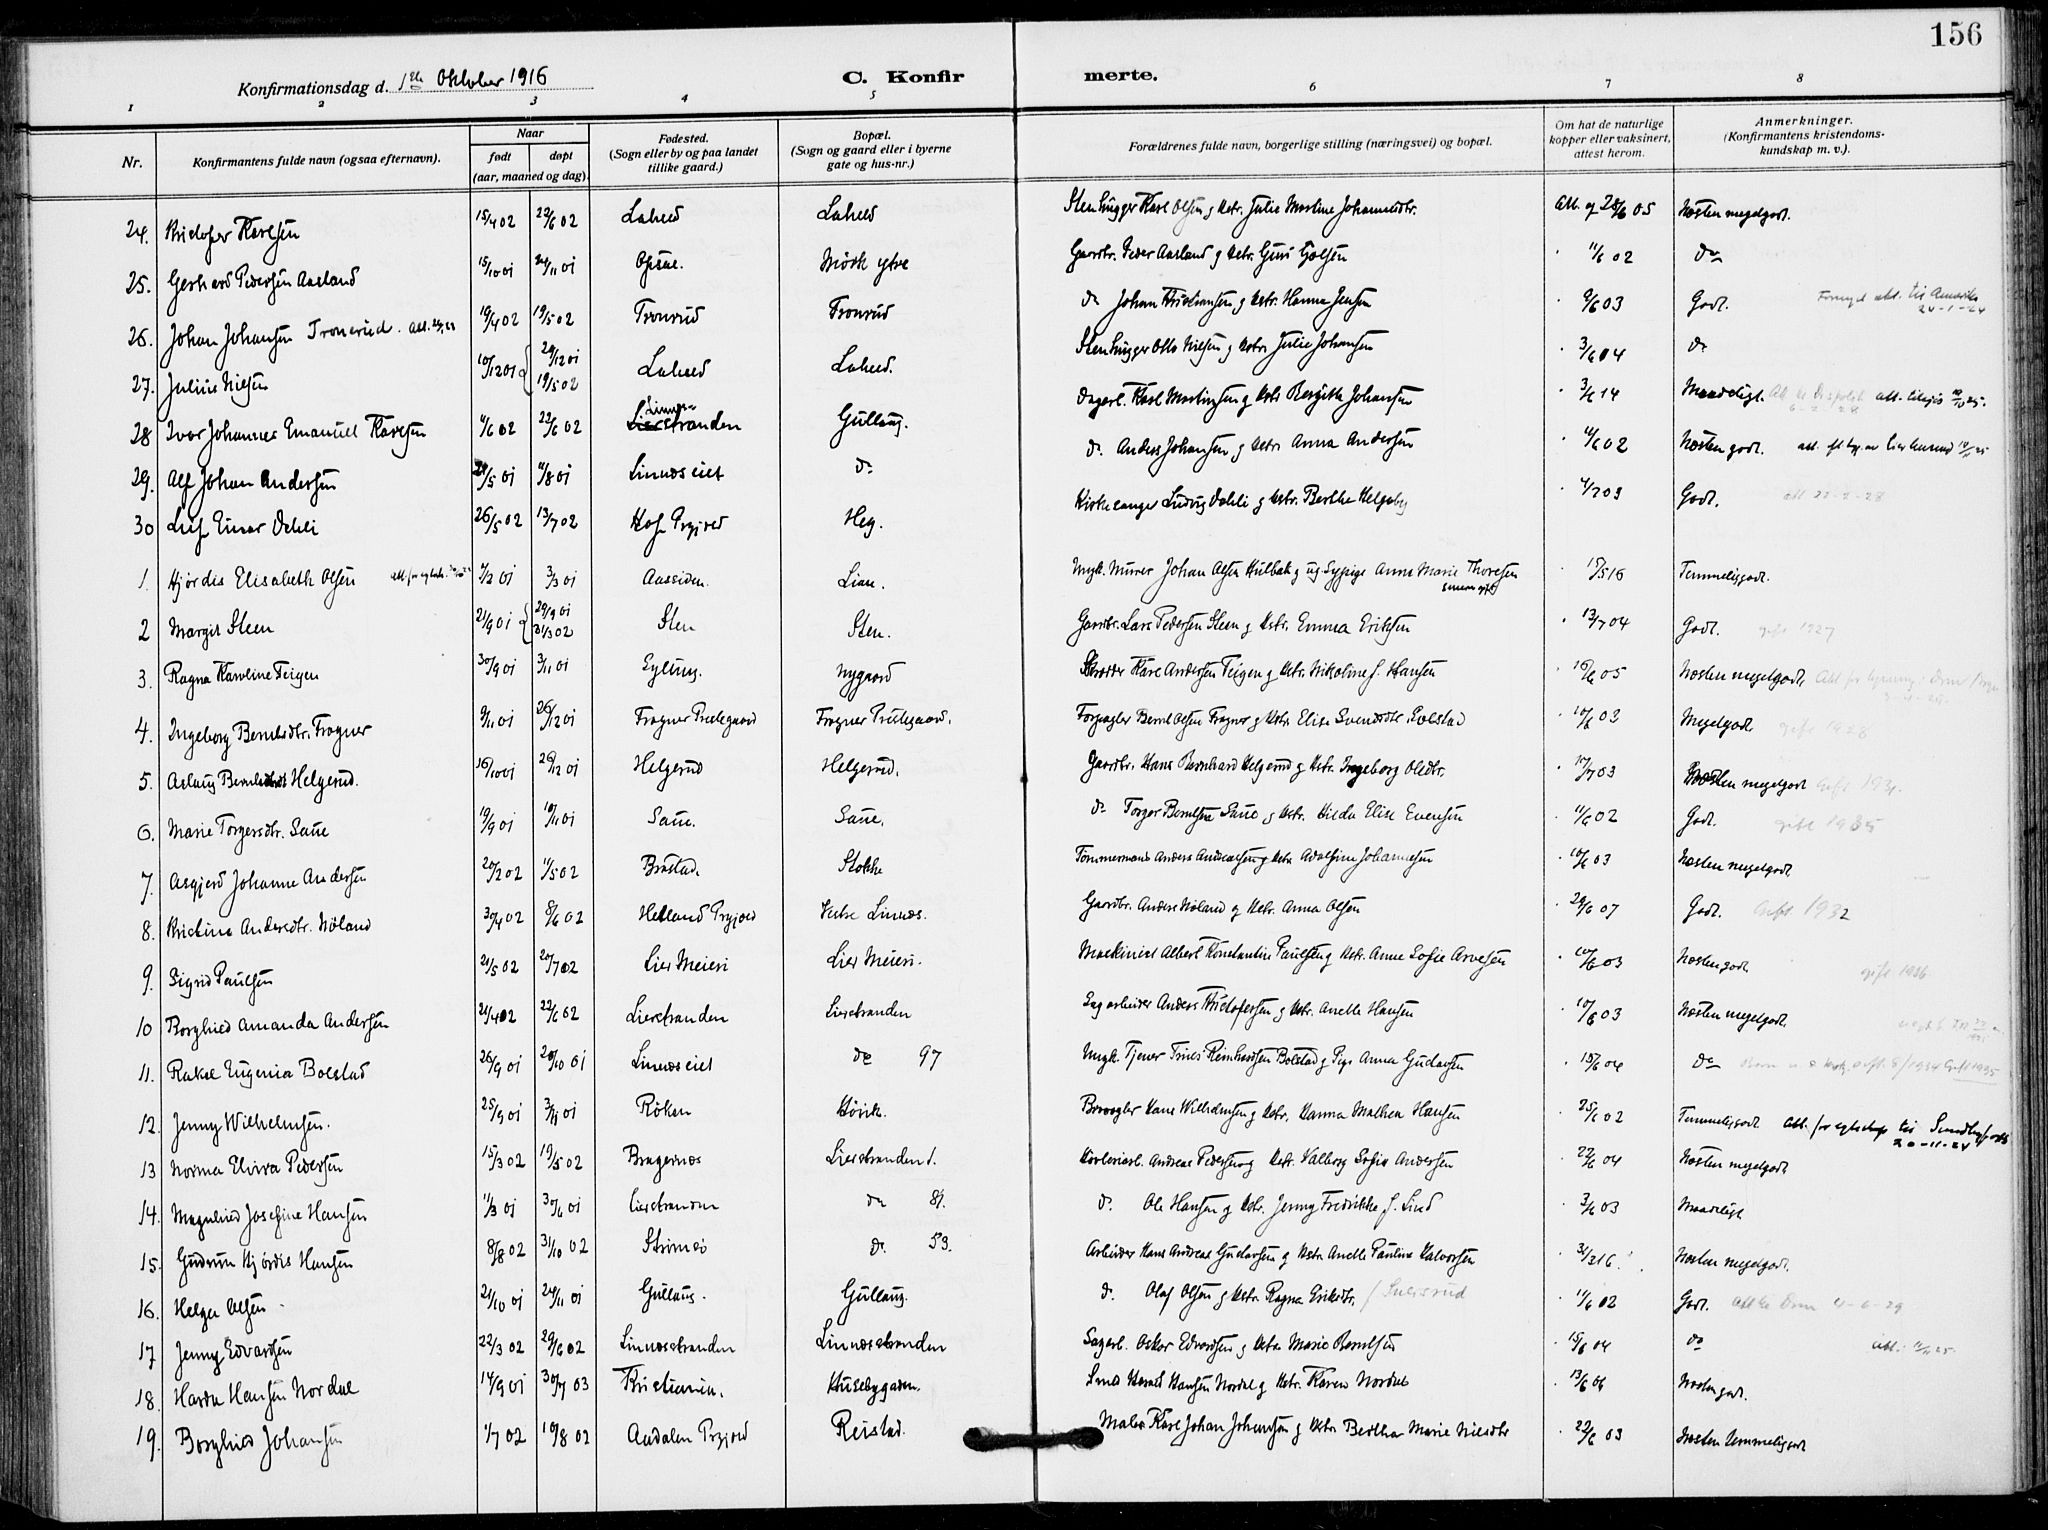 156
Konfirmationsdag d. 1ste Oktober 1916 C. Konfirmerte.
1 2 3 4 5 6 7 8
Nr. Konfirmantens fulde navn (ogsaa efternavn). Naar født døpt (aar, maaned og dag). Fødested. (Sogn eller by og paa landet tillike gaard.) Bopæl. (Sogn og gaard eller i byerne gate og hus-nr.) Forældrenes fulde navn, borgerlige stilling (næringsvei) og bopæl. Om hat de naturlige kopper eller vaksinert, attest herom. Anmerkninger. (Konfirmantens kristendomskundskap m. v.).
24. Kristofer Karlsen 15/4 02 22/6 02 Laheld Laheld Stenhugger Karl Olsen g Hstr. Julie Martine Johannesdtr. Att. af 28/6 05 Næsten megetgodt.
25. Gerhard Pedersen Aasland 15/10 01 24/11 01 Opsal. Mørk ytre Gaardbr. Peder Aasland g Hstr. Guri 11/6 02 do
26. Johan Johansen Tronerud. 19/4 02 19/5 02 Tronrud Tronrud do Johan Kristiansen g Hstr. Hanna Jensen 9/6 03 Godt. Fornyet att. til Amerika 24-1-24
27. Julius Nilsen 10/12 01 29/12 01 19/5 02 Laheld Laheld. Stenhugger Otto Nilsen g Hstr. Julie Johansen 3/6 04 do
28 Ivar Johannes Emanuel Karlsen 4/6 02 22/6 02 Linnesstranden Gullaug. Dagarb. Karl Martinsen g Hstr Bergitte Johansen 3/6 14 Maadeligt.
29. Alf Johan Andersen 29/5 01 4/8 01 Linnæseiet do do. Anders Johansen g Hstr. Anna Andersen 11/6 02 Næsten godt.
30 Leif Einar Dahli 26/5 02 13/7 02 Hof Prgjeld Heg. Kirkesanger Ludvig Dahli g Hstr. Berthe Helgeby 4/7 03 Godt. att 22-2-28
1. Hjørdis Elisabeth Olsen 7/2 01 3/3 01 Aassiden. Lian. Ungk. Murer Johan Olsen Hulbak g ug. Sypige Anne Marie Thoresen 15/5 16 Temmeliggodt.
2 Margit Steen 21/9 01 29/9 01 31/3 02 Sten Sten. Gaardbr. Lars Pedersen Steen g Hstr. Emma Eriksen 13/7 04 Godt. gift 1927
3. Ragna Karoline Teigen 30/9 01 3/11 01 Egtung. Nygaard Skrædder Karl Andersen Teigen g Hstr. Nikoline f. Hansen 16/6 05 Næsten megetgodt.
4. Ingeborg Berntsdtr. Fragner 9/11 01 26/12 01 Fragner Prestegaard Fragner Prestegaard. Forpagter Bernt Olsen Fragner g Hstr. Elise Svendsdtr. Bolstad 10/6 03 Megetgodt. gift 1928
5. Aslaug Berntsdtr Helgerud. 16/10 01 26/12 01 Helgerud Helgerud. Gaardbr. Hans Bernhard Helgerud g Hstr. Ingeborg Olsdtr. 17/7 03 Næsten megetgodt Gift 1931.
6. Marie Torgersdtr. Saue 19/9 01 10/11 01 Saue. Saue. do Torger Berntsen Saue g Hstr. Hilda Elise Evensen 11/6 02 Godt. gift 1935
7. Asgjerd Johanne Andersen 20/2 02 11/5 02 Brastad. Stokke Tømmermand Anders Andreassen g Hstr Adolfine Johannesen 10/6 03 Næsten megetgodt.
8. Kristine Andersdtr. Nøland 30/4 02 8/6 02 Hetland Prgjeld Vestre Linnes. Gaardbr. Anders Nøland g Hstr. Anna Olsen 29/6 07 Godt. Gift 1932
9. Sigrid Paulsen 21/5 02 20/7 02 Lier Meieri Lier Meieri. Maskinist Albert Konstantin Paulsen g Hstr. Anne Sofie Arvesen 10/6 03 Næsten godt. gift 1926
10 Borghild Amanda Andersen 21/4 02 22/6 02 Lierstranden Lierstranden Sagarbeider Anders Kristofersen g Hstr. Anette Hansen 10/6 03 Næsten megetgodt.
11. Rakel Eugenia Bolstad 26/9 01 20/10 01 Linnæseiet do 97 Ungk. Tjener Trines Reinhardsen Bolstad g Pige Anna Gudavsen 15/6 04 do
12. Jenny Wilhelmsen. 25/9 01 3/11 01 Røken Høvik. Brovogter Hans Wilhelmsen g Hstr. Hanna Mathea Hansen 25/6 02 Temmeliggodt Att. for egteskap til Sundbyfoss 20-11-24
13 Norma Elvira Pedersen 15/3 02 19/5 02 Bragernæs Lierstranden 1. Høvleriarb. Andreas Pedersen g Hstr. Valborg Sofie Andersen 22/6 04 Næsten megetgodt
14. Magnhild Josefine Hansen 11/3 01 30/6 01 Lierstranden do 81. do. Ole Hansen g Hstr. Jenny Fredrikke f. Lind 3/6 03 Maadeligt
15. Gudrun Hjørdis Hansen 8/8 02 31/10 02 Strømsø do. 53. Arbeider Hans Andreas Gustavsen g Hstr Anette Pauline Halvorsen 31/3 16. Næsten megetgodt.
16. Helga Olsen 21/10 01 24/11 01 Gullaug. Gullaug. do. Olaf Olsen g Hstr. Ragna Eriksdtr. 11/6 02 Godt. Att til Drm 4-6-29
17 Jenny Edvardsen 22/3 02 29/6 02 Linnæsstranden Linnæsstranden Sagarb. Oskar Edvardsen g Hstr Marie Berntsen 15/6 04 do
18. Harda Hansen Nordal 14/9 01 30/7 03 Kristiania. Husebygaden. Smed Harald Hansen Nordal g Hstr. Karen Nordal 13/6 04 Næsten godt.
19. Borghild Johansen 1/7 02 10/8 02 Aadalen Prgjeld Reistad. Maler Karl Johan Johansen g Hstr Berthe Marie Nilsdtr 22/6 03 Næsten temmeliggodt